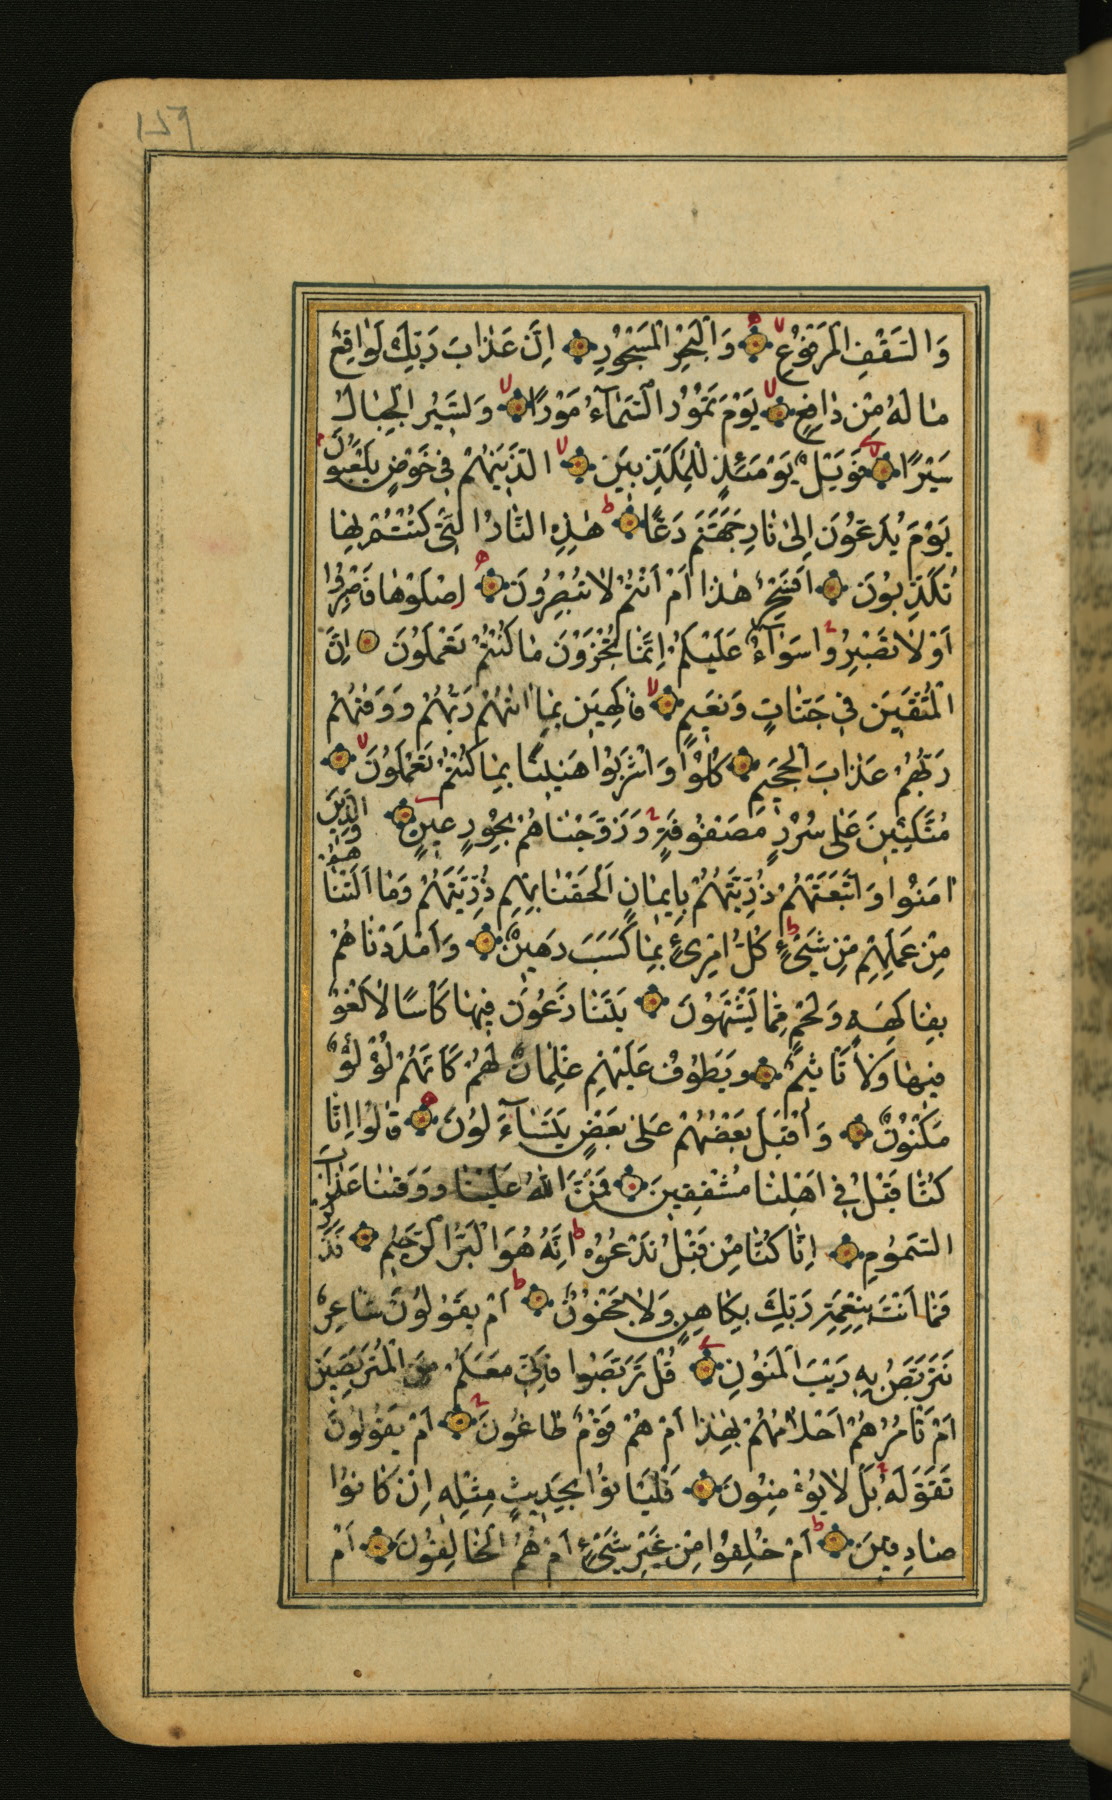 وَالسَّقْفِ الْمَرْفُوعِ وَالْبَحْرِ الْمَسْجُورِ اِنَّ عَذَابَ رَبِّكَ لَوَاقِعٌ
مَا لَهُ مِنْ دَافِعٍ يَوْمَ تَمُورُ السَّمَآءُ مَوْرًا وَتَسِيرُ الْجِبَالُ
سَيْرًا فَوَيْلٌ يَوْمَئِذٍ لِلْمُكَذِّبِينَ الَّذِينَهُمْ فِى خَوْضٍ يَلْعَبُونَ
يَوْمَ يُدَعُّونَ اِلَى نَارِ جَهَنَّمَ دَعًّا هٰذِهِ النَّارُ الَّتِى كُنْتُمْ بِهَا
تُكَذِّبُونَ اَفَسِحْرٌ هٰذَا اَمْ اَنْتُمْ لَا تُبْصِرُونَ اِصْلَوْهَا فَاصْبِرُوا
اَوْ لَا تَصْبِرُوا سَوَآءٌ عَلَيْكُمْ اِنَّمَا تُجْزَوْنَ مَا كُنْتُمْ تَعْمَلُونَ اِنَّ
الْمُتَّقِينَ فِى جَنَّاتٍ وَنَعِيمٍ فَاكِهِينَ بِمَا اٰتٰهُمْ رَبُّهُمْ وَوَقٰهُمْ
رَبُّهُمْ عَذَابَ الْجَحِيمِ كُلُوا وَاشْرَبُوا هَنِيئًا بِمَا كُنْتُمْ تَعْمَلُونَ
مُتَّكِئِينَ عَلٰى سُرُرٍ مَصْفُوفَةٍ وَزَوَّجْنَاهُمْ بِحُورٍ عِينٍ وَالَّذِينَ
اٰمَنُوا وَاتَّبَعَتْهُمْ ذُرِّيَّتُهُمْ بِاِيمَانٍ اَلْحَقْنَا بِهِمْ ذُرِّيَّتَهُمْ وَمَا اَلَتْنَاهُمْ
مِنْ عَمَلِهِمْ مِنْ شَىْءٍ كُلُّ امْرِئٍ بِمَا كَسَبَ رَهِينٌ وَاَمْدَدْنَاهُمْ
بِفَاكِهَةٍ وَلَحْمٍ مِمَّا يَشْتَهُونَ يَتَنَازَعُونَ فِيهَا كَاْسًا لَا لَغْوٌ
فِيهَا وَلَا تَاْثِيمٌ وَيَطُوفُ عَلَيْهِمْ غِلْمَانٌ لَهُمْ كَاَنَّهُمْ لُؤْلُؤٌ
مَكْنُونٌ وَاَقْبَلَ بَعْضُهُمْ عَلٰى بَعْضٍ يَتَسَآءَلُونَ قَالُوا اِنَّا
كُنَّا قَبْلُ فِى اَهْلِنَا مُشْفِقِينَ فَمَنَّ اللّٰهُ عَلَيْنَا وَوَقٰنَا عَذَابَ
السَّمُومِ اِنَّا كُنَّا مِنْ قَبْلُ نَدْعُوهُ اِنَّهُ هُوَ الْبَرُّ الرَّحِيمُ فَذَكِّرْ
فَمَا اَنْتَ بِنِعْمَةِ رَبِّكَ بِكَاهِنٍ وَلَا مَجْنُونٌ اَمْ يَقُولُونَ شَاعِرٌ
نَتَرَبَّصُ بِهِ رَيْبَ الْمَنُونِ قُلْ تَرَبَّصُوا فَاِنِّى مَعَكُمْ مِنَ الْمُتَرَبِّصِينَ
اَمْ تَاْمُرُهُمْ اَحْلَامُهُمْ بِهٰذَا اَمْ هُمْ قَوْمٌ طَاغُونَ اَمْ يَقُولُونَ
تَقَوَّلَهُ بَلْ لَا يُؤْمِنُونَ فَلْيَاْتُوا بِحَدِيثٍ مِثْلِهِ اِنْ كَانُوا
صَادِقِينَ اَمْ خُلِقُوا مِنْ غَيْرِ شَىْءٍ اَمْ هُمُ الْخَالِقُونَ اَمْ